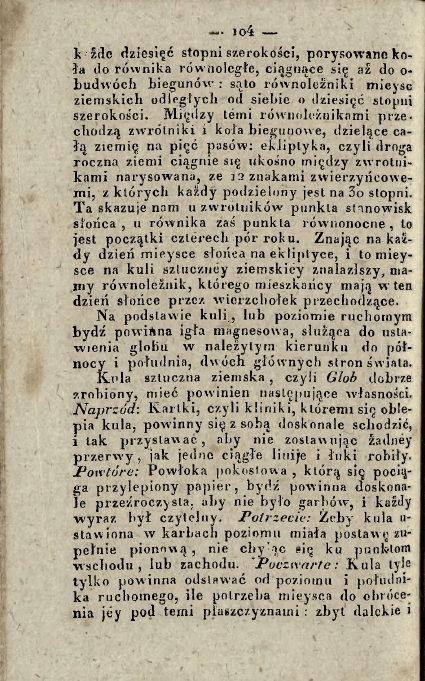 — 104 —
każde dziesięć stopni szerokości, porysowane ko-
ła do równika równoległe, ciągnące się aż do o-
budwóch biegunów: sąto równoleżniki mieysc
ziemskich odległych od siebie o dziesięć stopni
szerokości. Między témi równoleżnikami prze-
chodzą zwrótniki i koła biegunowe, dzielące ca-
łą ziemię na pięć pasów: ekliptyka, czyli droga
roczna ziemi ciągnie się ukośno między zwrotni-
kami narysowana, ze 12 znakami zwierzyńcowe-
mi, z których każdy podzielony jest na 30 stopni.
Ta skazuje nam u zwrotników punkta stanowisk
słońca, u równika zaś punkta równonocne, to
jest początki czterech pór roku. Znając na każ-
dy dzień mieysce słońca na ekliptyce, i to miey-
sce na kuli sztuczney ziemskiey znalazłszy, ma-
my równoleżnik, którego mieszkańcy mają w ten
dzień słońce przez wierzchołek przechodzące.
Na podstawie kuli, lub poziomie ruchomym
bydź powinna igła magnesowa, służąca do usta-
wienia globu w należytym kierunku do pół-
nocy i południa, dwóch głównych stron świata.
Kula sztuczna ziemska, czyli Glob dobrze
zrobiony, mieć powinien następujące własności.
Naprzód: Kartki, czyli kliniki, któremi się oble-
pia kula, powinny się z sobą doskonale schodzić,
i tak przystawać, aby nie zostawując żadnéy
przerwy, jak jedne ciągłe linije i łuki robiły.
Powtóre: Powłoka pokostowa, którą się pocią-
ga przylepiony papier, bydź powinna doskona-
le przeźroczysta, aby nie było garbów, i każdy
wyraz był czytelny. Potrzecie: Żeby kula u-
stawiona w karbach poziomu miała postawę zu-
pełnie pionową, nie chyląc się ku punktom
wschodu, lub zachodu. Poczwarte: Kula tyle
tylko powinna odstawać od poziomu i południ-
ka ruchomego, ile potrzeba mieysca do obróce-
nia jéy pod temi płaszczyznami: zbyt dalekie i